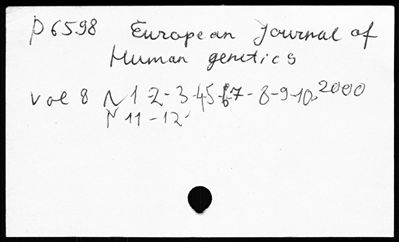 P6598 European Journal of
Human genetics
vol 8 N 1-2-3-45-6-7-8-9-10-2000
N 11-12-